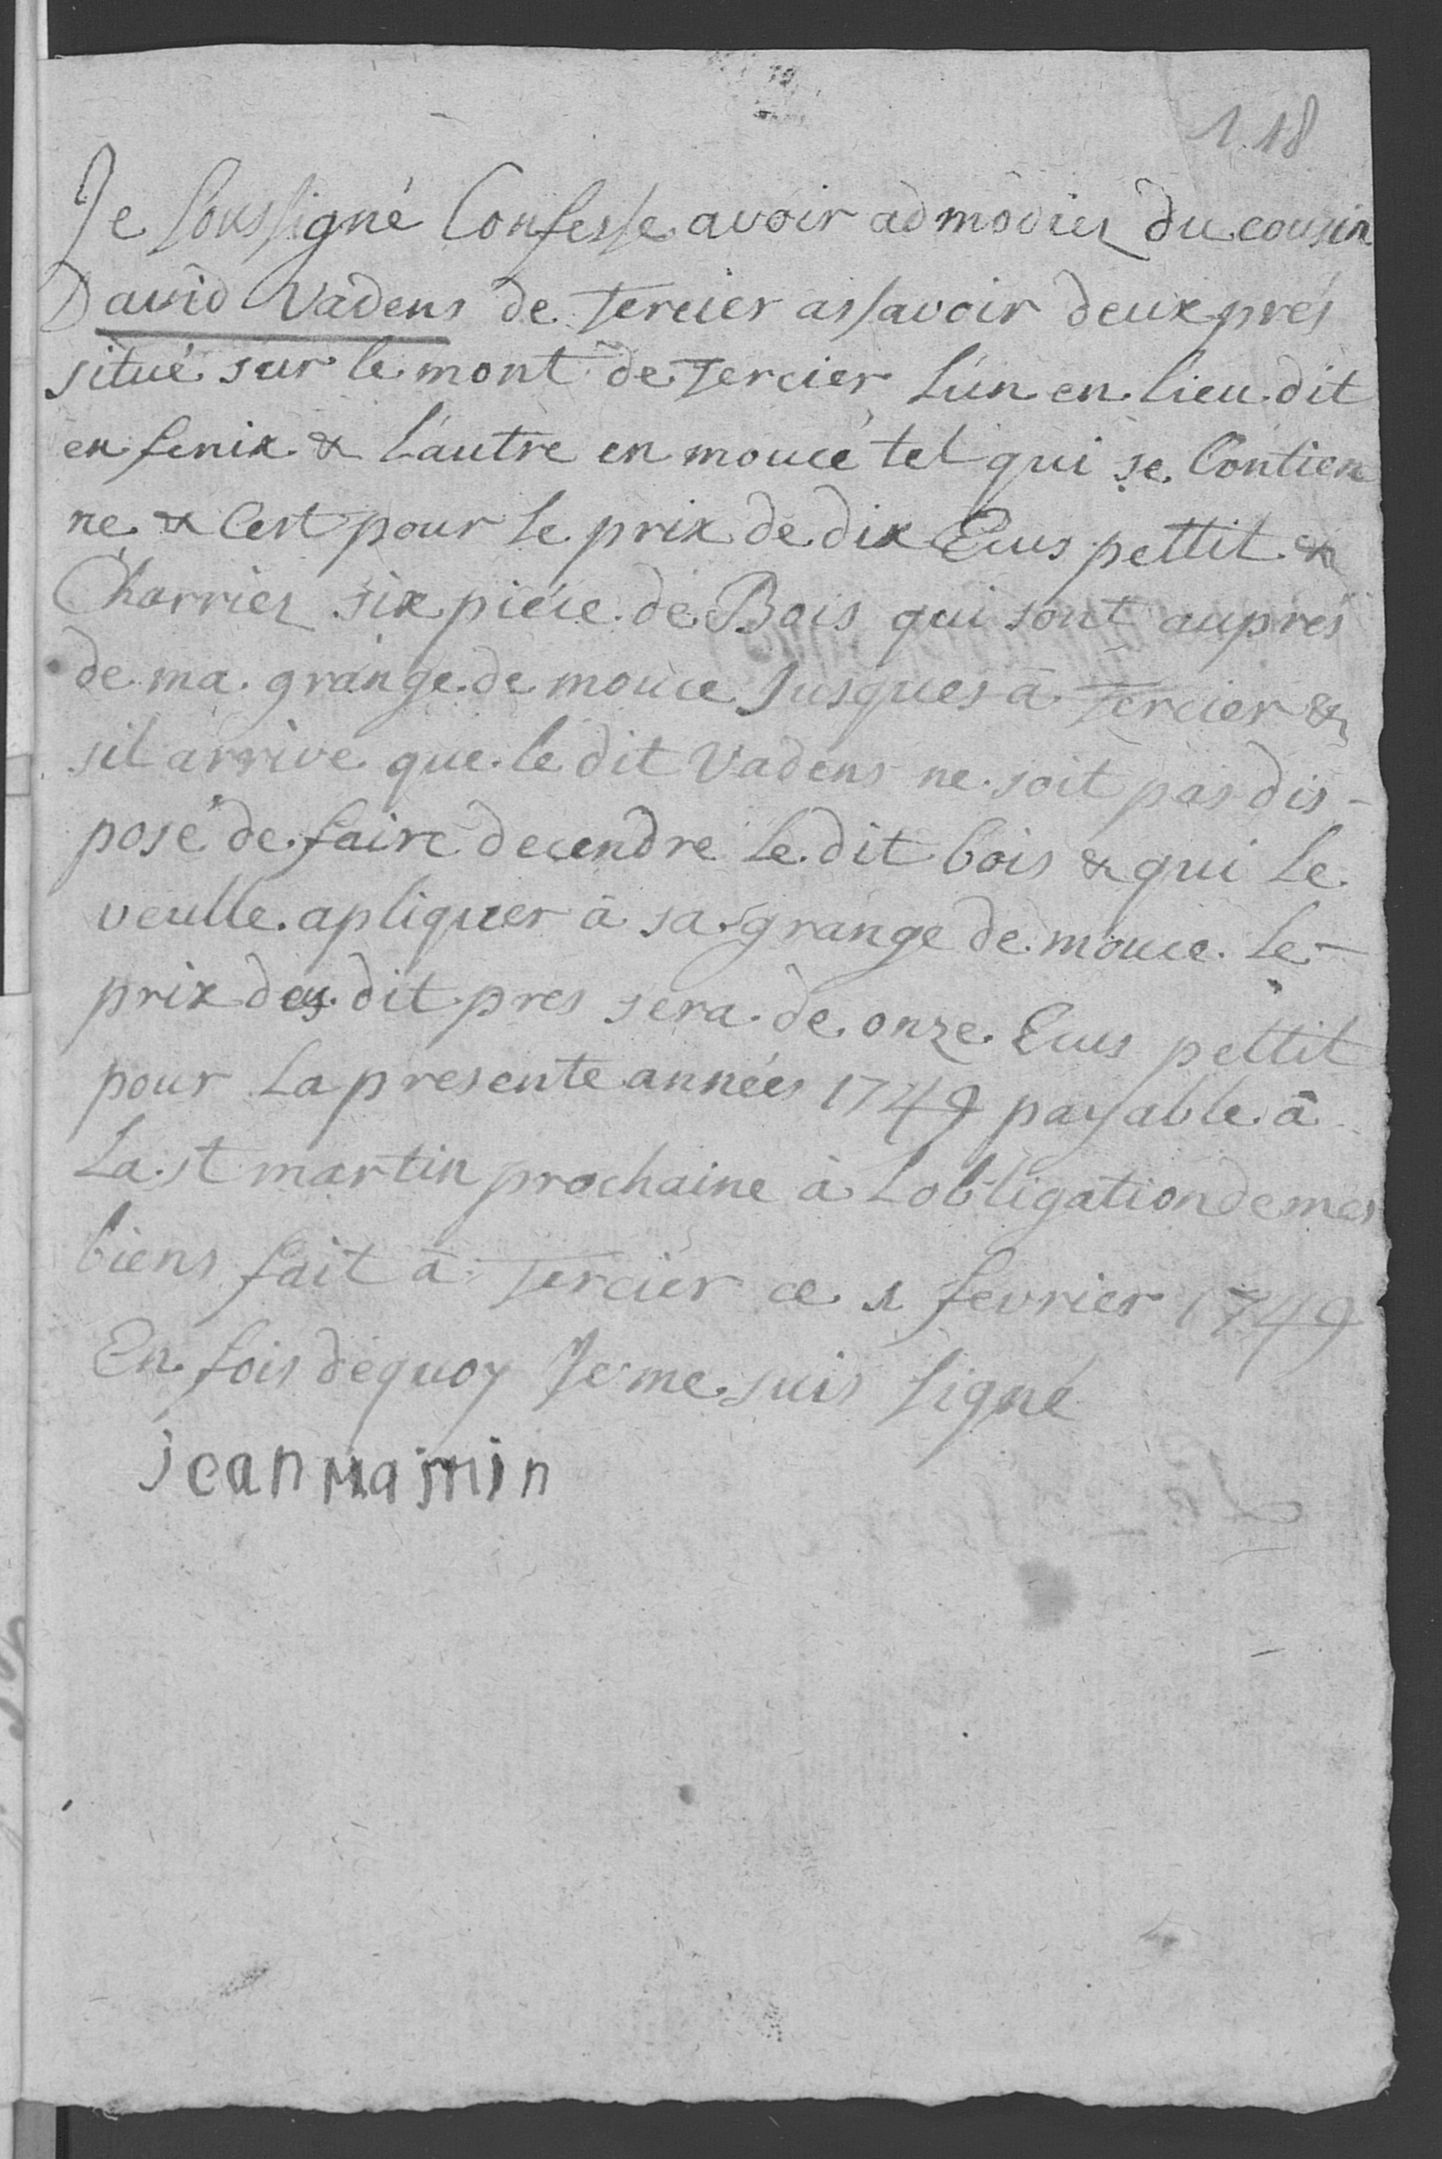 118
Je soussigné Confesse avoir admodiez du cousin
David Vadens de Tercier assavoir deux prés
situé sur le mont de Tercier Lún en lieu dit
en fenix & Láutre en moucé tel qui se Contien
ne & Cest pour le prix de dix Ecus pettit &
Charriez six piéce de Bois qui sont auprès
de ma grange de mouce Jusques à Tercier &
sil arrive que le dit Vadens ne soit pas dis-
posé de faire decendre Le dit bois & qui Le
veulle apliquer à sa grange de mouce Le
prix des dit pres sera de onze Ecus pettit
pour La presente annéés 1749 payable à
La st martin prochaine à Lobligation de mes
biens fait à Tercier ce 1 fevrier 1749
En fois dequoy Je me suis signé
jean mamin